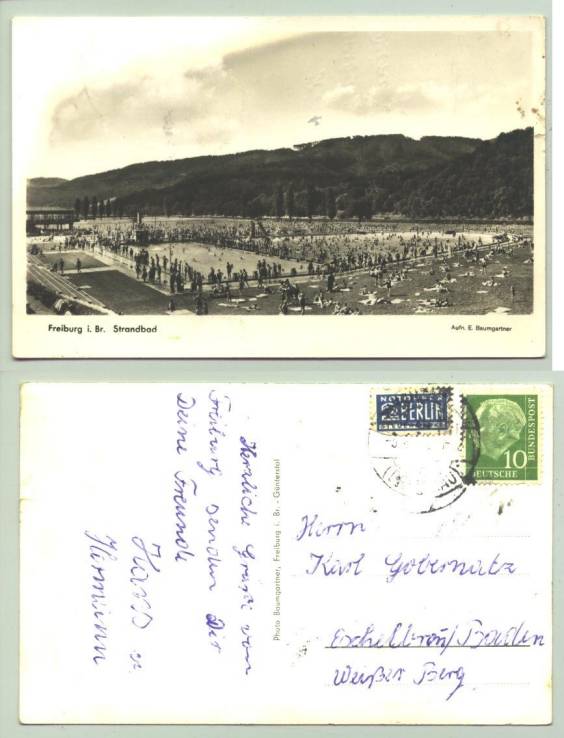 Freiburg i. Br. Strandbad
Aufn. E. Baumgartner
Herzliche Grüße von
Freiburg senden Dir
Deine Freunde
Photo Baumgartner, Freiburg i. Br. - Günterstal
NOTOPFER
2 BERLIN
STEUERMARKE
10
DEUTSCHE
BUNDESPOST
Herrn
Karl Gobernatz
Eschelbronn/Baden
Weißer Berg